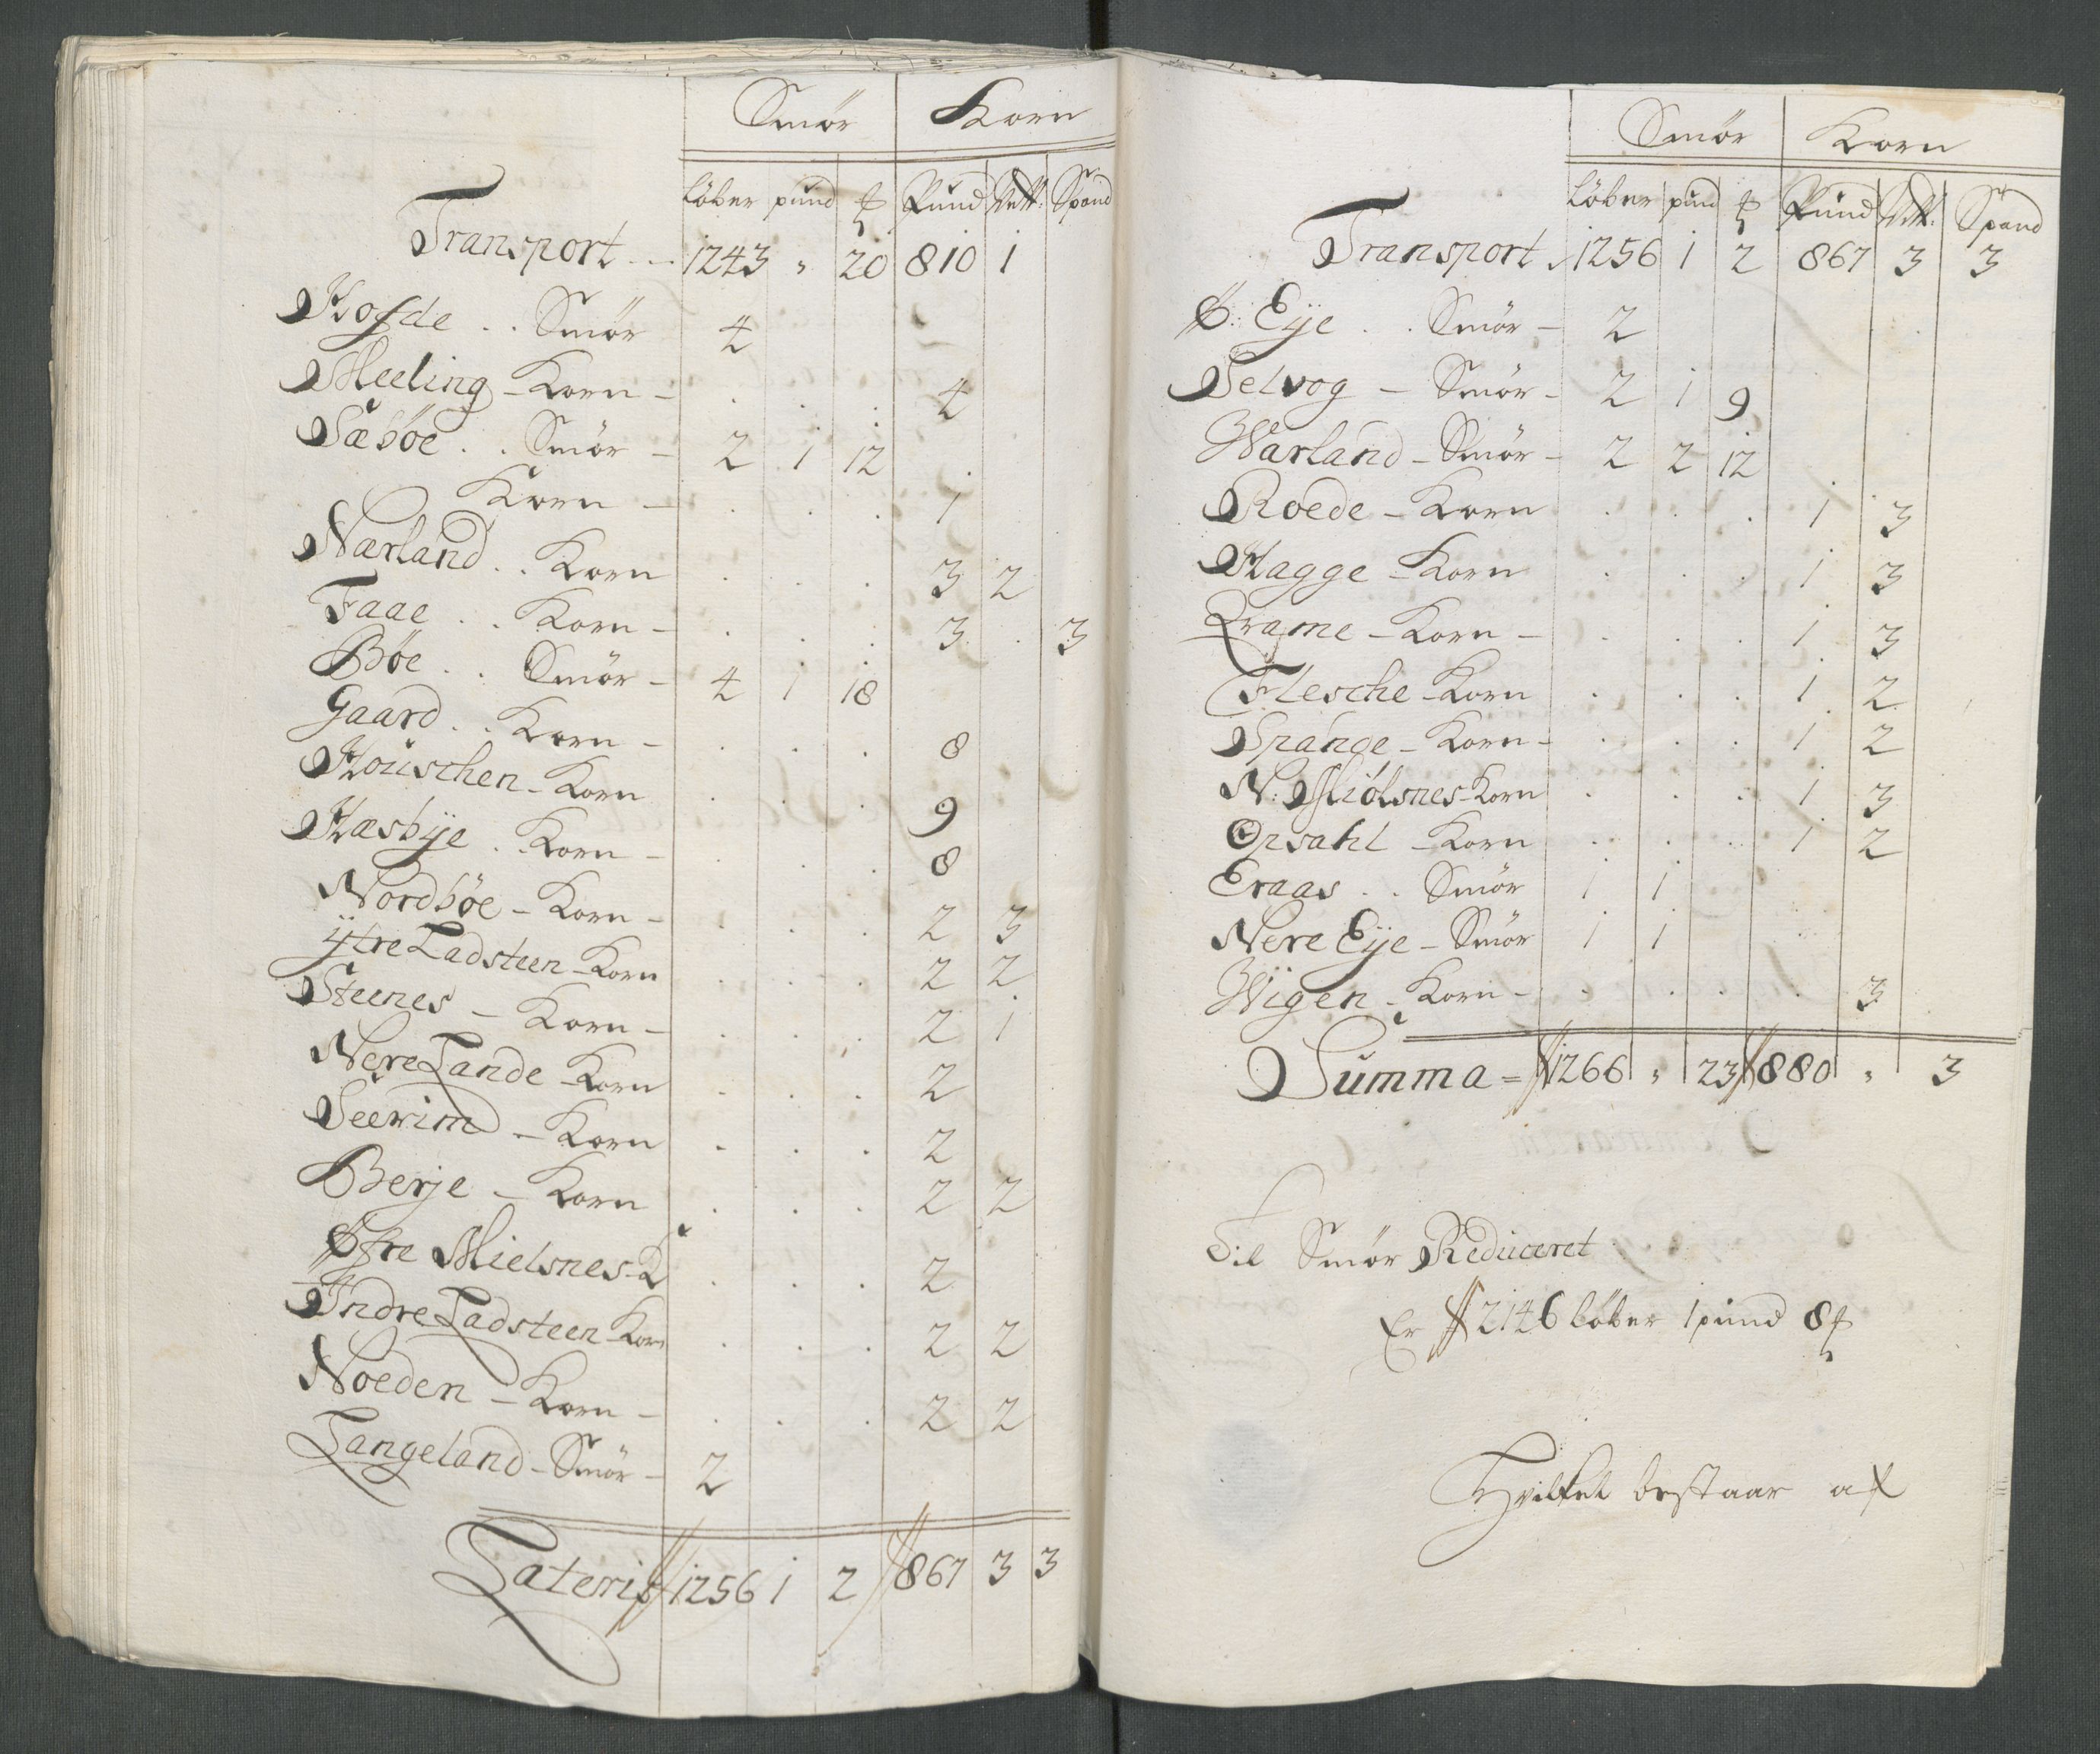 Smör Korn
Löber pund ℔ Pund Vett: Spand
Transport .. 1243 " 20 810 1
Hofde .. Smör 4
Meeling - Korn - . . . 4
Sæbøe .. Smör - 2 1 12 .
Korn - . . . 1
Nærland .. Korn . . . 3 2
Faae .. Korn - . . . 3 . 3
Bøe .. Smör - 4 1 18
Gaard .. Korn - . . . 8
Houschen - Korn . . . 9
Hæsbÿe .. Korn - . . . 8
Nordbøe - Korn - . . . 2 3
ÿtre Ladsteen - Korn . . . 2 2
Steenes - Korn - . . . 2 1
Nere Lande - Korn . . . 2
Seerim - Korn . . . 2
Berje - Korn . . . 2 2
Øfre Mielsnes - K . . . 2
Indre Ladsteen - Korn . . . 2 2
Noeden - Korn - . . . 2 2
Langeland - Smör - 2
Lateris 1256 1 2 867 3 3
Smör Korn
Löber pund ℔ Pund Vett: Spand
Transport . 1256 1 2 867 3 3
Ø: Eÿe .. Smör - 2
Selvog - Smör - 2 1 9
Warland - Smör - 2 2 12
Roede - Korn . . . 1 3
Hagge - Korn . . . 1 3
Qvame - Korn - . . . 1 3
Flesche - Korn . . . 1 2
Spange - Korn - . . . 1 2
N: Miølsnes - Korn . . . 1 3
Opsahl - Korn . . . 1 2
Eraas .. Smör 1 1
Nere Eÿe - Smör 1 1
Wigen - Korn - . . . . 3
Summa = 1266 " 23 880 " 3
Til Smör Reduceret
Er 2146 Löber 1 pund 8 ℔
Hvilket bestaar af